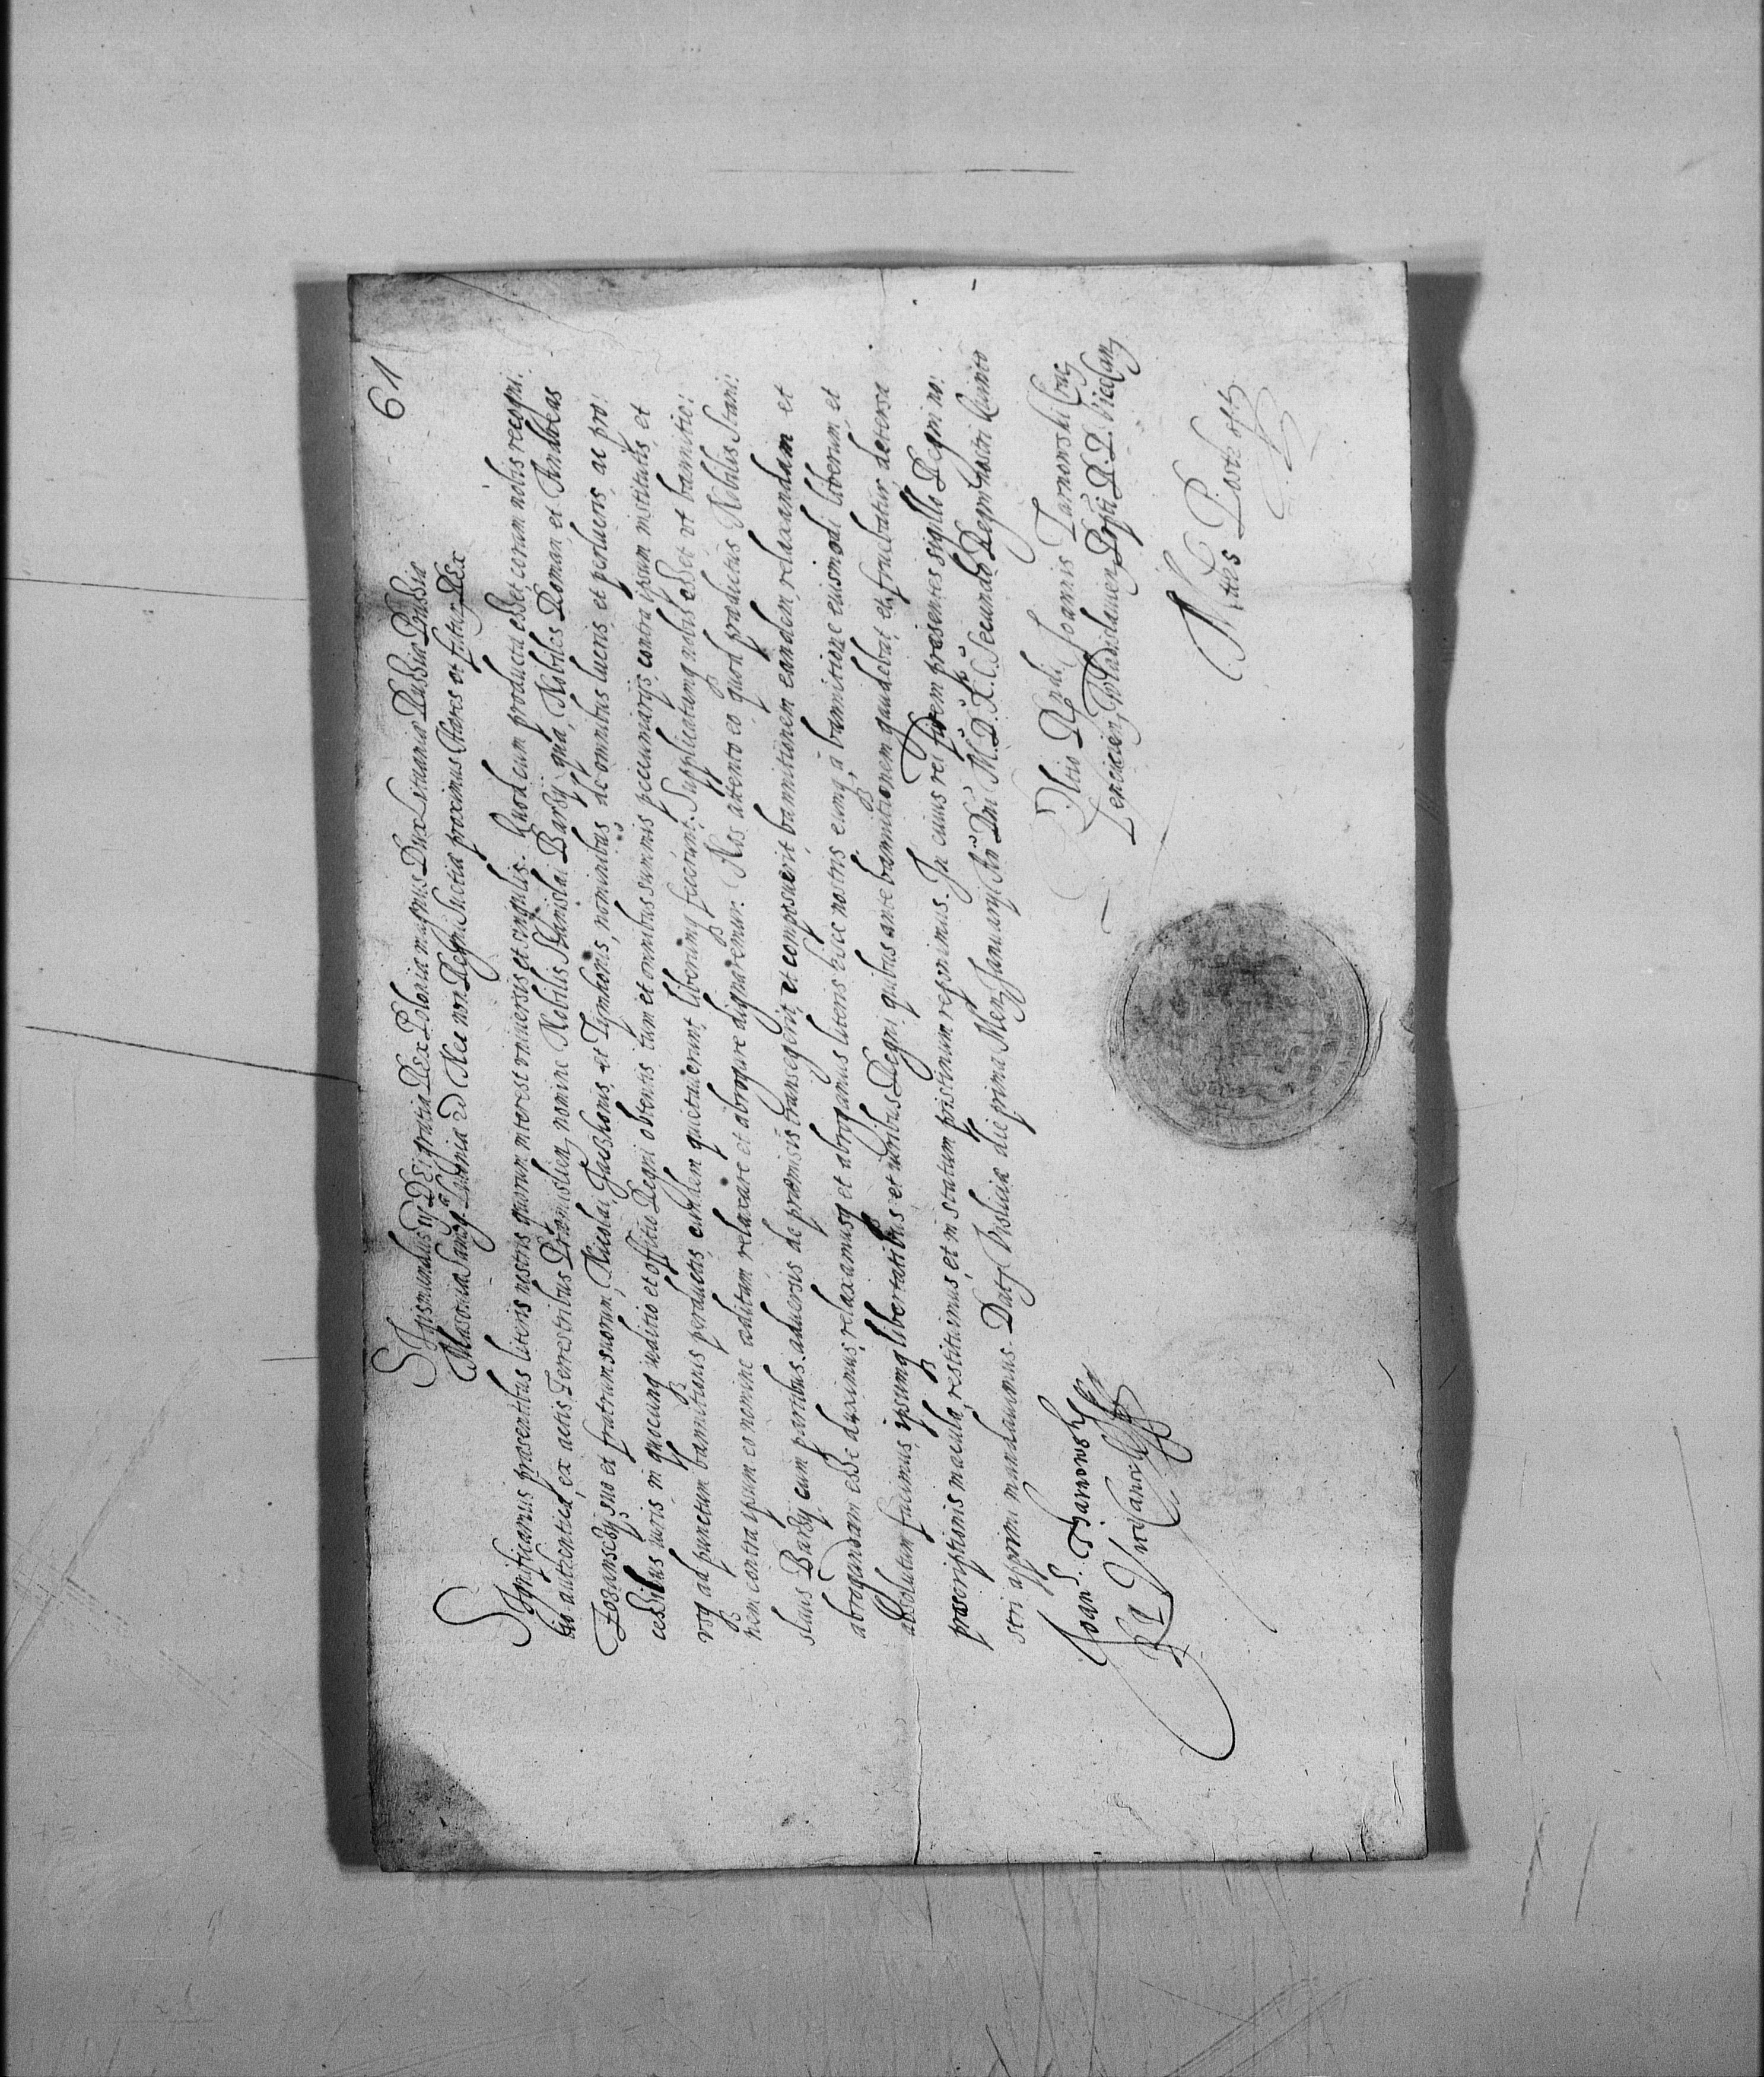 61
Sigismundus III DEI gratia REX Poloniæ magnus Dux Lituaniæ Russiæ Prussiæ
Masoviæ Samog. Livoniæ &c Nec non Regni Suetiæ proximus Hæres et futur9 REX
Significamus præsentibus literis nostris quorum interest universis et singulis. Quod cum producta esset coram nobis recogni:
tio authentica, ex actis Terrestribus Præmislien, nomine Nobilis Stanislai Barsÿ qua, Nobiles Roman et Andreas
suo et fratrum suorum, Nicolai, et Tymkonis, nominibus de omnibus lucris et perlucris, ac pro:
cessibus iuris in quocunq iuditio et offitio Regni obtentis tum et omnibus summis pecuniarijs contra ipsum institutis et
usq ad punctum bannitionis perductis eundem quietaverunt liberumq fecerunt. Supplicatumq nobis esset vt bannitio:
nem contra ipsum eo nomine æditam relaxare et abrogare dignaremur. Nos attento eo quod prædictus Nobilis Stani:
slaus Barsÿ cum partibus adversis de præmissis transegerit et composuerit bannitionem eandem relaxandam et
abrogandam esse duximus, relaxamusq et abrogamus literis hisce nostris eumq à bannitione eiusmodi liberum et
absolutum facimus ipsumq libertatibus et iuribus Regni quibus ante bannitionem gaudebat et fruebatur, detersa
præscriptionis macula, restituimus, et in statum pristinum reponimus. In cuius rei fidem præsentes sigillo Regni no:
stri apprimi mandavimus. Dat Visliciæ die prima Men Januarÿ Aō Dni M.D.XC. Secundo Regni nostri Quinto
Joan. Tharnowsky
R P Vicecanc
Rndi Joannis Tarnowski Crac
Lencicien, Wladislavien Ppti R. P. Vicecan